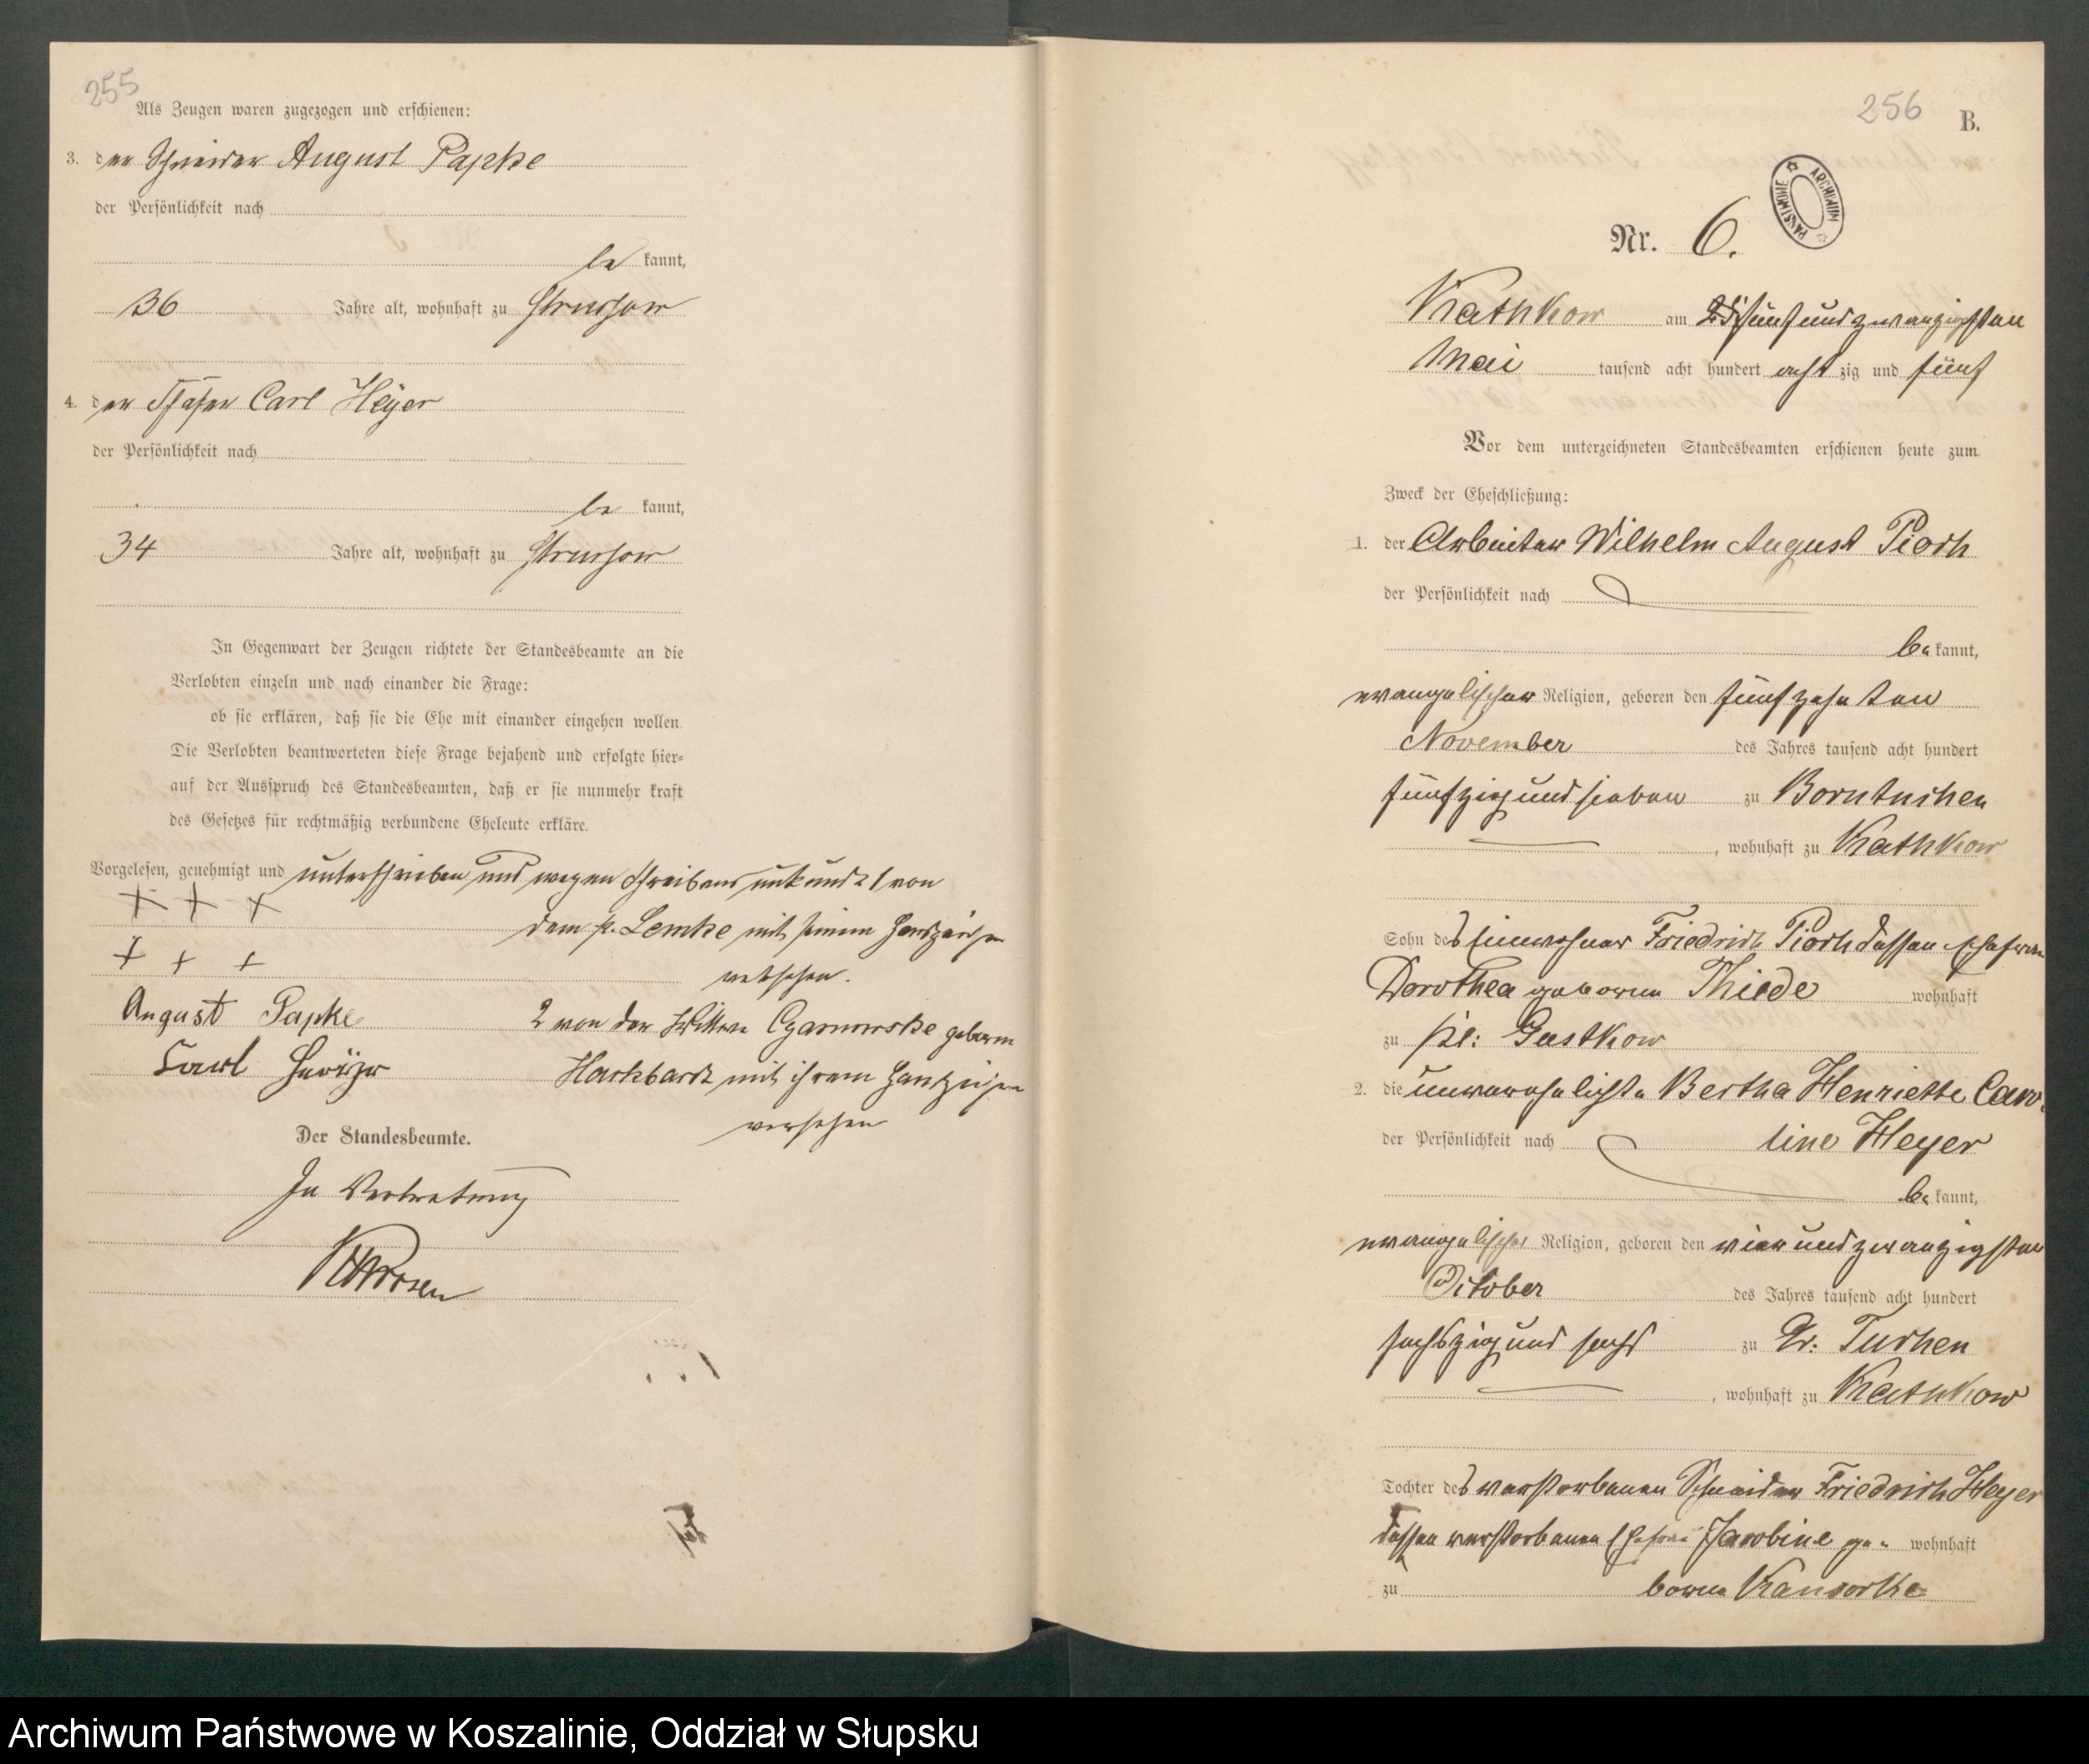 255
Als Zeugen waren zugezogen und erschienen:
3. der Schneider August Papke
der Persönlichkeit nach
be kannt,
36 Jahre alt, wohnhaft zu Strussow
4. der Schäfer Carl Heyer
der Persönlichkeit nach
be kannt,
34 Jahre alt, wohnhaft zu Strussow
In Gegenwart der Zeugen richtete der Standesbeamte an die
Verlobten einzeln und nach einander die Frage:
ob sie erklären, daß sie die Ehe mit einander eingehen wollen.
Die Verlobten beantworteten diese Frage bejahend und erfolgte hier=
auf der Ausspruch des Standesbeamten, daß er sie nunmehr kraft
des Gesetzes für rechtmäßig verbundene Eheleute erkläre.
Vorgelesen, genehmigt und unterschrieben und wegen Schreibensunkunde 1 von
+ + + dem p. Lemke mit seinem Handzeichen
+ + + versehen.
August Papke 2 von der Wittwe geborene
Carl Hackbardt mit ihrem Handzeichen
versehen
Der Standesbeamte.
In Vertretung
256
B.
ARCHIWUM PAŃSTWOWE
Nr. 6.
Kathkow am fünf und zwanzigsten
Mai tausend acht hundert acht zig und fünf
Vor dem unterzeichneten Standesbeamten erschienen heute zum
Zweck der Eheschließung:
1. der Arbeiter Wilhelm August Pioch
der Persönlichkeit nach
be kannt,
evangelischer Religion, geboren den fünfzehnten
November des Jahres tausend acht hundert
fünfzig und sieben zu Borntuchen
, wohnhaft zu Kathkow
Sohn des Einwohner Friedrich Pioch dessen Ehefrau
Dorothea geborene Thiede wohnhaft
zu kl: Gustkow
2. die unverehelichte Bertha Henriette Caro-
der Persönlichkeit nach line Heyer
be kannt,
evangelischer Religion, geboren den vier und zwanzigsten
October des Jahres tausend acht hundert
sechszig und sechs zu Gr: Tuchen
, wohnhaft zu Kathkow
Tochter des verstorbenen Schneider Friedrich Heyer
dessen verstorbenen Ehefrau Jacobine ge= wohnhaft
zu borene
Archiwum Państwowe w Koszalinie, Oddział w Słupsku